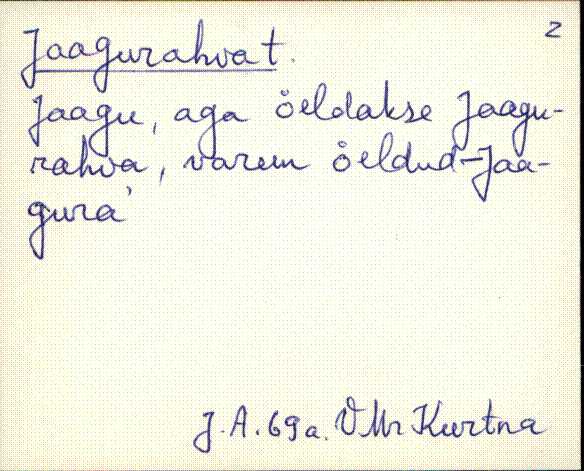 2
Jaagurahva t.
Jaagu, aga öeldakse Jaagu-
rahva, varem öeldud-Jaa-
gura'
J.A. 69a. VMr Kurtna